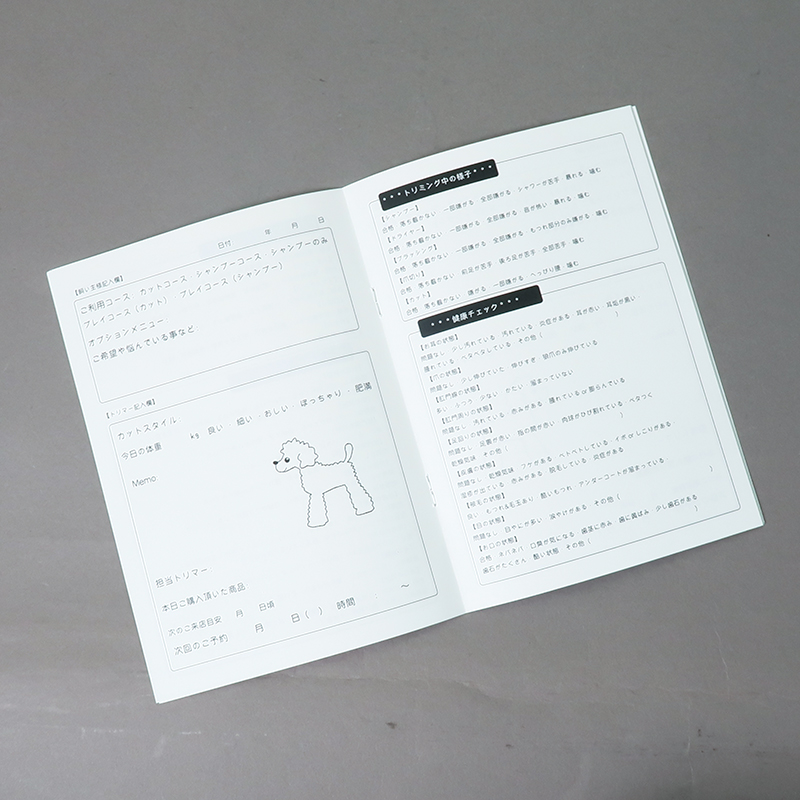 日付　　年　　月　　日
【飼い主様記入欄】
ご利用コース　カットコース　シャンプーコース　シャンプーのみ
プレイコース（カット）　プレイコース（シャンプー）
オプションメニュー
ご希望や悩んでいる事など
【トリマー記入欄】
カットスタイル
今日の体重　　kg　良い　細い　おしい　ぽっちゃり　肥満
Memo
担当トリマー
本日ご購入頂いた商品
次のご来店目安　　月　　日頃
次回のご予約　　月　　日（　）　時間　：　～
***トリミング中の様子***
【シャンプー】
合格　落ち着かない　一部嫌がる　全部嫌がる　シャワーが苦手　暴れる　噛む
【ドライヤー】
合格　落ち着かない　一部嫌がる　全部嫌がる　音が怖い　暴れる　噛む
【ブラッシング】
合格　落ち着かない　一部嫌がる　全部嫌がる　もつれ部分のみ嫌がる　噛む
【爪切り】
合格　落ち着かない　前足が苦手　後ろ足が苦手　全部苦手　噛む
【カット】
合格　落ち着かない　嫌がる　一部嫌がる　へっぴり腰　噛む
***健康チェック***
【お耳の状態】
問題なし　少し汚れている　汚れている　炎症がある　耳が赤い　耳垢が黒い
腫れている　ベタベタしている　その他（　　）
【爪の状態】
問題なし　少し伸びていた　伸びすぎ　狼爪のみ伸びている
【肛門腺の状態】
多い　ふつう　少ない　かたい　溜まっていない
【肛門周りの状態】
問題なし　汚れている　赤みがある　腫れている or 膨らんでいる
【足回りの状態】
問題なし　足裏が赤い　指の間が赤い　肉球がひび割れている　ベタつく
乾燥気味　その他（
【皮膚の状態】
問題なし　乾燥気味　フケがある　ベトベトしている　イボ or しこりがある
湿疹が出ている　赤みがある　脱毛している　炎症がある
【被毛の状態】
良い　もつれ&毛玉あり　酷いもつれ　アンダーコートが溜まっている
【目の状態】
問題なし　目やにが多い　涙やけがある　その他（　　）
【お口の状態】
合格　ネバネバ　口臭が気になる　歯茎に赤み　歯に黄ばみ　少し歯石がある
歯石がたくさん　酷い状態　その他（　　）